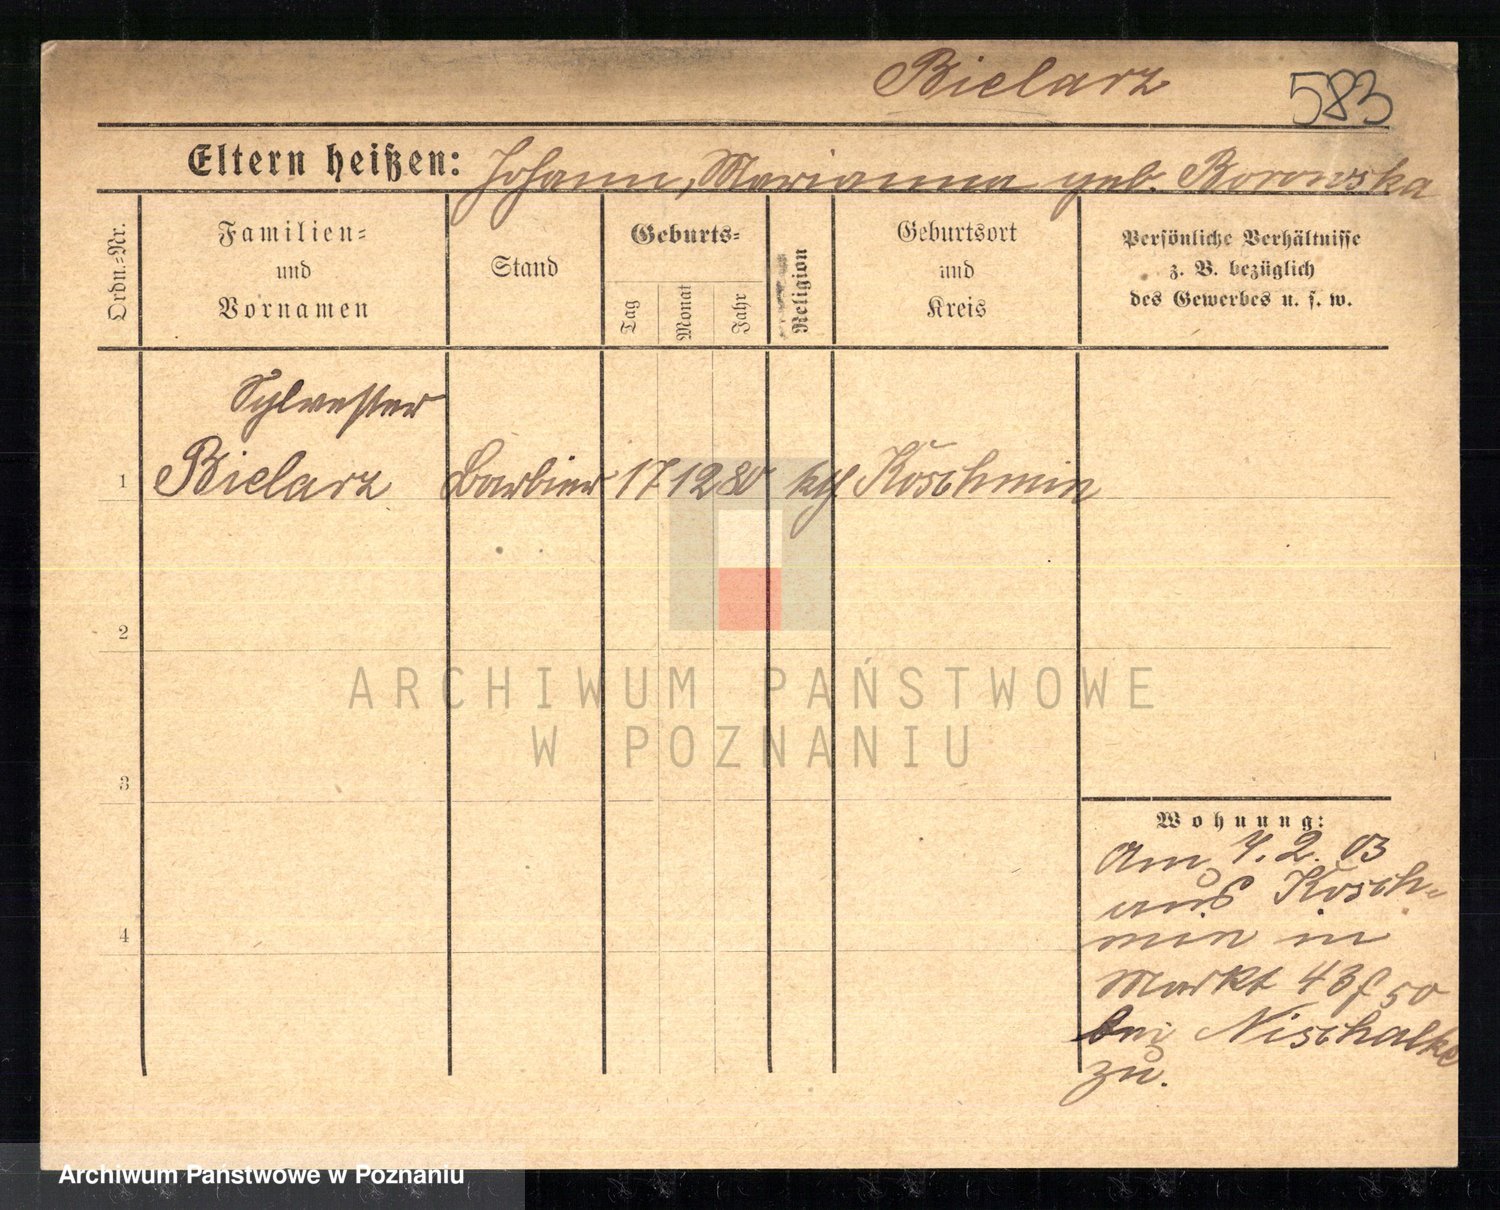 Bielarz
583
Eltern heißen: Johann, Marianna geb. Borowska
Ordn.-Nr.
Familien-
und
Vornamen
Stand
Geburts-
Tag
Monat
Jahr
Religion
Geburtsort
und
Kreis
Persönliche Verhältnisse
z. B. bezüglich
des Gewerbes u. s. w.
Sylvester
1 Bielarz Barbier 17 12 80 kth Koschmin
2
ARCHIWUM PAŃSTWOWE
W POZNANIU
3
Wohnung:
Am 4. 2. 03
aus Kosch-
4
min in
Markt 43 f 50
bei Nischalke
zu.
Archiwum Państwowe w Poznaniu